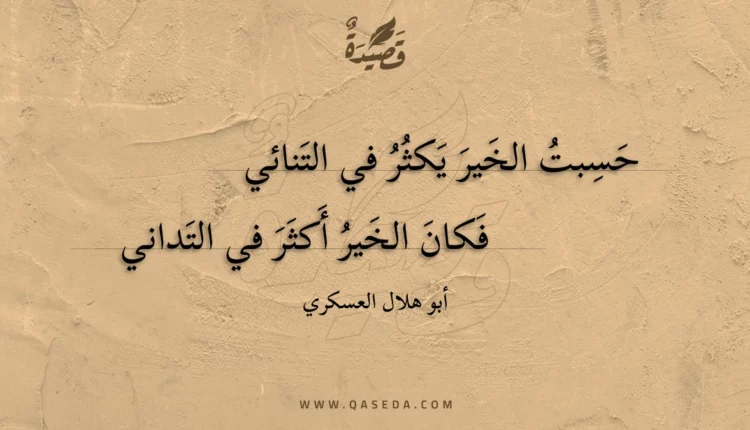 قَصِيدَةٌ
حَسِبتُ الخَيرَ يَكثُرُ في التَنائي
فَكانَ الخَيرُ أَكثَرَ في التَداني
أبو هلال العسكري
WWW.QASEDA.COM